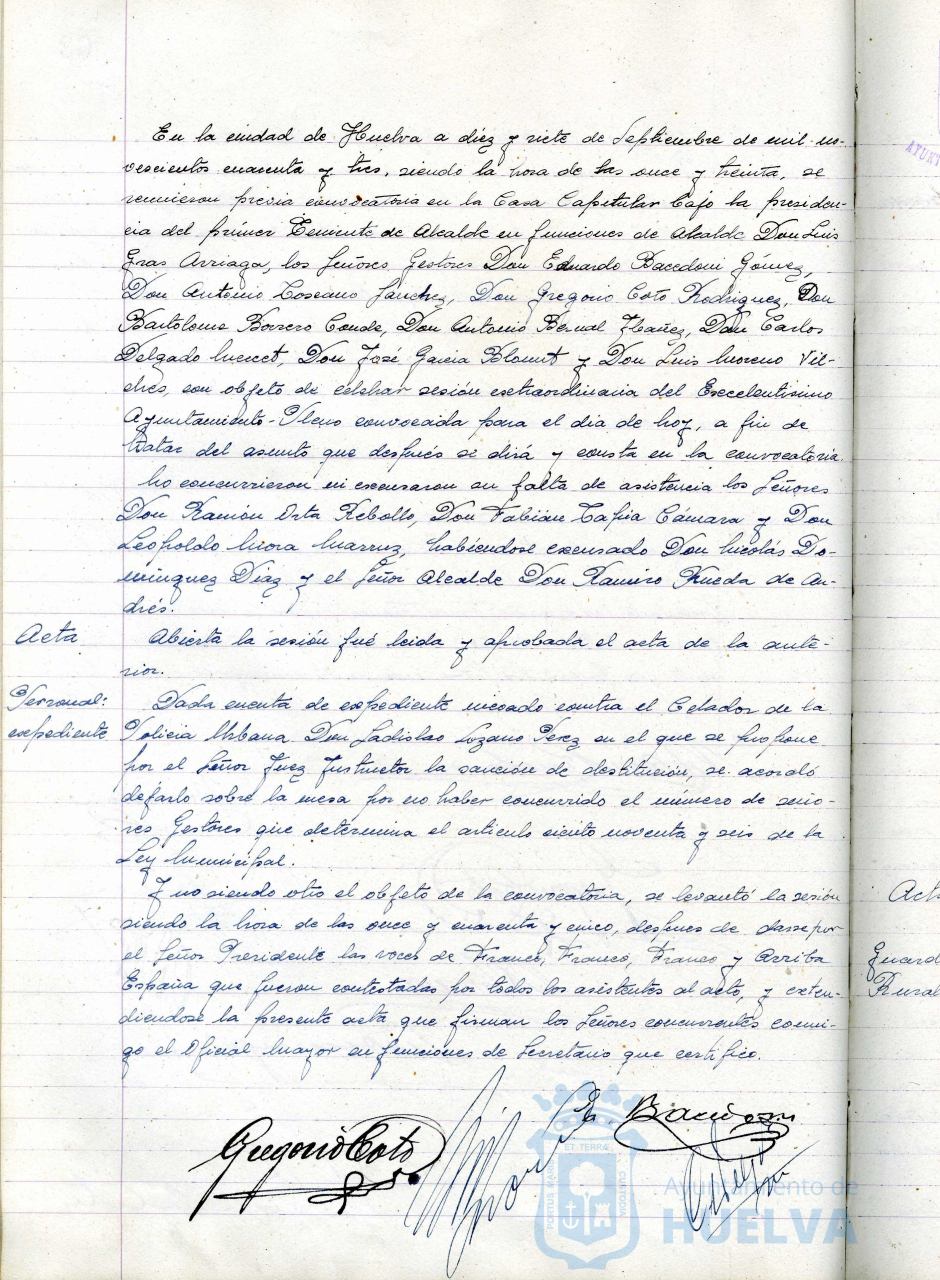 En la ciudad de Huelva a diez y siete de Septiembre de mil no-
vescientos cuarenta y tres, siendo la hora de las once y treinta, se
reunieron previa convocatoria en la Casa Capitular bajo la presiden-
cia del primer Teniente de Alcalde en funciones de Alcalde Don Luis
Gras Arriaga, los Señores Gestores Don Eduardo Bacedoni Gómez,
Don Antonio Toscano Sánchez, Don Gregorio Coto Rodriguez, Don
Bartolomé Borrero Conde, Don Antonio Bernal Ibañez, Don Carlos
Delgado, Don José Garcia Blount y Don Luis Moreno Vil-
ches, con objeto de celebrar sesión extraordinaria del Excelentísimo
Ayuntamiento-Pleno convocada para el dia de hoy, a fin de
tratar del asunto que después se dirá y consta en la convocatoria.
No concurrieron ni excusaron su falta de asistencia los Señores
Don Ramón Orta Rebollo, Don Fabián Tapia Cámara y Don
Leopoldo Mora, habiéndose excusado Don Nicolás Do-
minguez Diaz y el Señor Alcalde Don Ramiro Rueda de An-
drés.
Acta
Abierta la sesión fué leida y aprobada el acta de la ante-
rior.
Personal:
expediente
Dada cuenta de expediente incoado contra el Celador de la
Policia Urbana Don Ladislao Lozano Perez en el que se propone
por el Señor Juez Instructor la sanción de destitución, se acordó
dejarlo sobre la mesa por no haber concurrido el número de seño-
res Gestores que determina el articulo ciento noventa y seis de la
Ley Municipal.
Y no siendo otro el objeto de la convocatoria, se levantó la sesión
siendo la hora de las once y cuarenta y cinco, despues de darse por
el Señor Presidente las voces de Franco, Franco, Franco y Arriba
España que fueron contestadas por todos los asistentes al acto, y exten-
diendose la presente acta que firman los Señores concurrentes conmi-
go el Oficial Mayor en funciones de Secretario que certifico.
Gregorio Coto
E. Bacedoni
ET TERRÆ
PORTUS MARIS
CUSTODIA
Ayuntamiento de
HUELVA
AYUNT
Acta
Guard
Rural